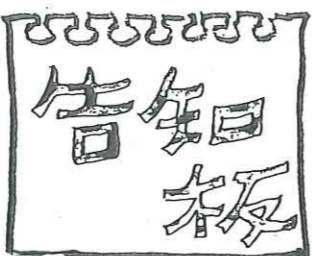 告知
板